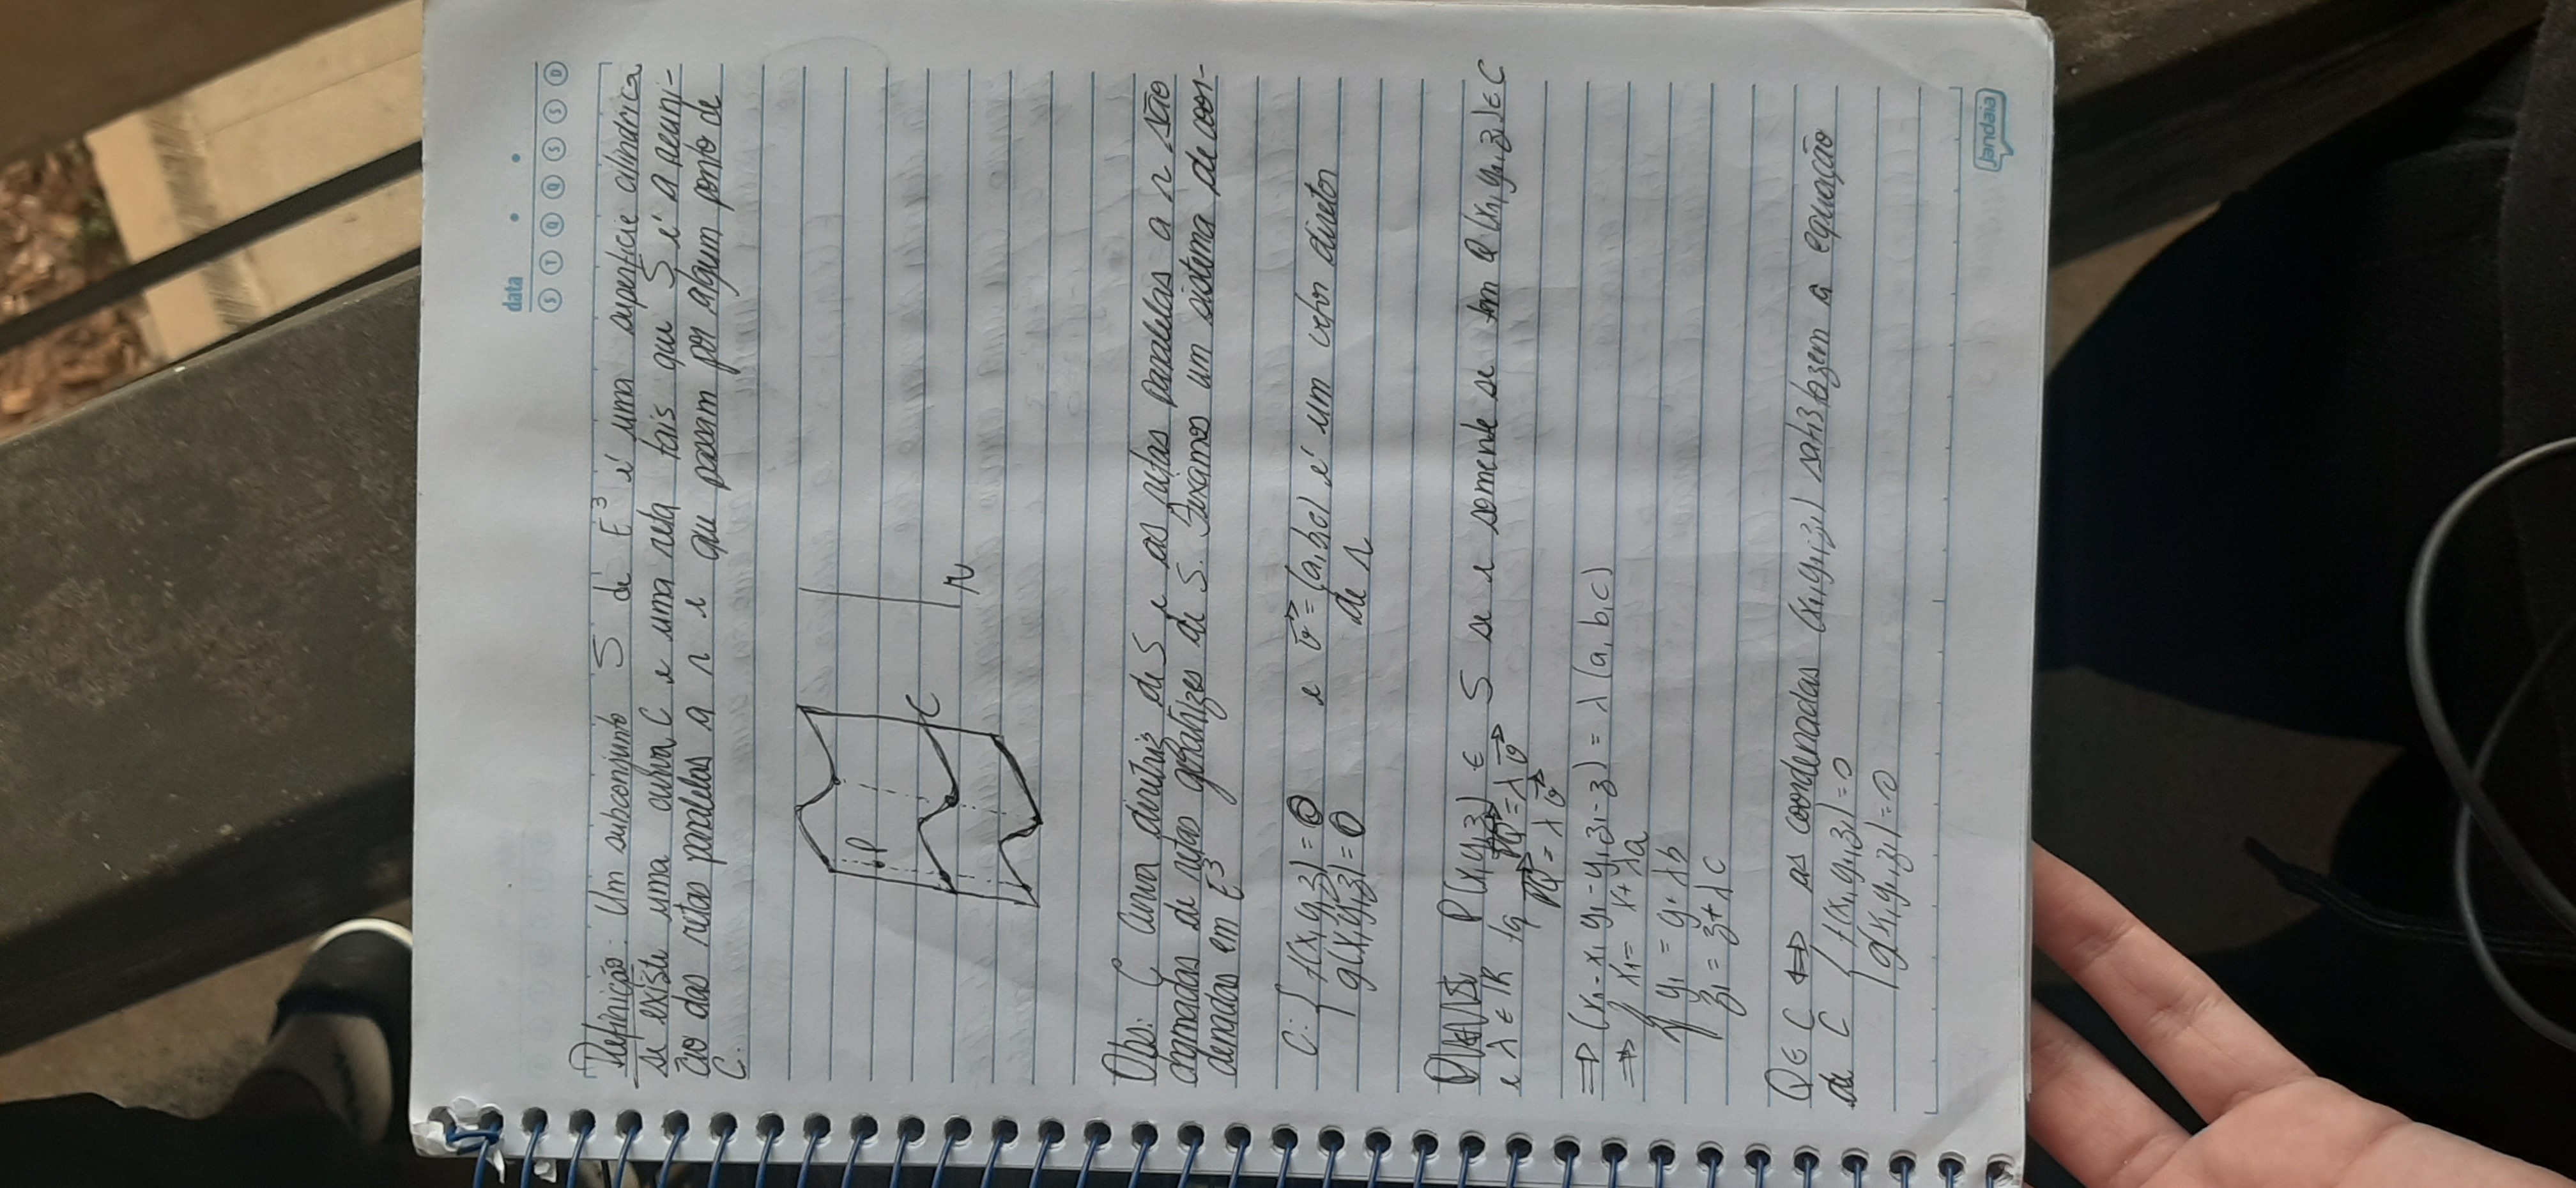 data
S T Q Q S S D
Definição: Um subconjunto S de E³ é uma superfície cilíndrica
se existe uma curva C e uma reta tais que S é a reuni-
ão das retas paralelas a r e que passam por algum ponto de
C.
P
C
r
Obs: C curva diretriz de S e as retas paralelas a r são
chamadas de retas geratrizes de S. Fixamos um sistema de coor-
denadas em E³
C: { f(x,y,z) = 0 e v⃗ = (a,b,c) é um vetor diretor
g(x,y,z) = 0 de r
P(x,y,z) ∈ S se e somente se tem Q(x₁,y₁,z₁) ∈ C
e λ ∈ ℝ tq PQ⃗ = λ v⃗
PQ⃗ = λ v⃗
⇒ (x₁-x, y₁-y, z₁-z) = λ (a,b,c)
⇒ { x₁ = x + λa
y₁ = y + λb
z₁ = z + λc
Q ∈ C ⇔ as coordenadas (x₁,y₁,z₁) satisfazem a equação
de C { f(x₁,y₁,z₁) = 0
g(x₁,y₁,z₁) = 0
jandaia